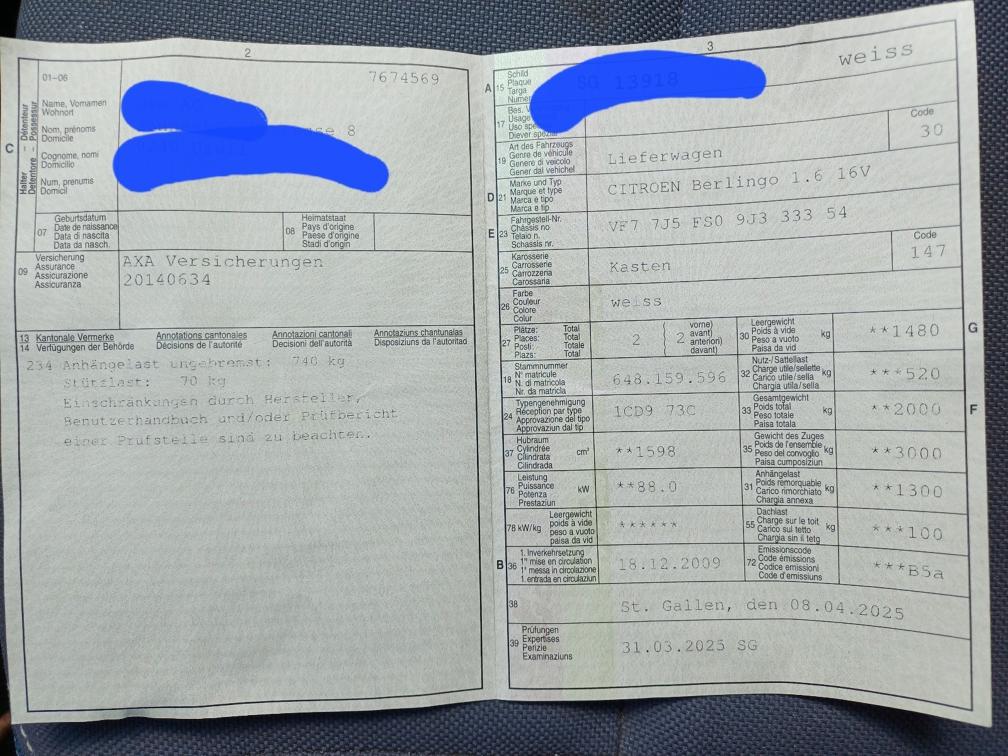 2
01-06
7674569
Name, Vornamen
Wohnort
Nom, prénoms
Domicile
Cognome, nomi
Domicilio
Num, prenums
Domicil
8
C
Halter – Détenteur
Detentore – Possessur
07 Geburtsdatum
Date de naissance
Data di nascita
Data da nasch.
08 Heimatstaat
Pays d'origine
Paese d'origine
Stadi d'origin
09 Versicherung
Assurance
Assicurazione
Assicuranza
AXA Versicherungen
20140634
13 Kantonale Vermerke Annotations cantonales Annotazioni cantonali Annotaziuns chantunalas
14 Verfügungen der Behörde Décisions de l'autorité Decisioni dell'autorità Disposiziuns da l'autoritad
234 Anhängelast ungebremst: 740 kg
Stützlast: 70 kg
Einschränkungen durch Hersteller,
Benutzerhandbuch und/oder Prüfbericht
einer Prüfstelle sind zu beachten.
3
A 15 Schild
Plaque
Targa
Numer
weiss
17 Bes.
Usage
Uso
Diever
19 Art des Fahrzeugs
Genre de véhicule
Genere di veicolo
Gener dal vehichel
Lieferwagen
Code
30
D 21 Marke und Typ
Marque et type
Marca e tipo
Marca e tip
CITROEN Berlingo 1.6 16V
E 23 Fahrgestell-Nr.
Châssis no
Telaio n.
Schassis nr.
VF7 7J5 FS0 9J3 333 54
25 Karosserie
Carrosserie
Carrozzeria
Carossaria
Kasten
Code
147
26 Farbe
Couleur
Colore
Colur
weiss
27 Plätze: Total
Places: Total
Posti: Totale
Plazs: Total
2 2 vorne)
avant)
anteriori)
davant)
30 Leergewicht
Poids à vide
Peso a vuoto
Paisa da vid
kg
**1480
G
18 Stammnummer
N° matricule
N. di matricola
Nr. da matricla
648.159.596
32 Nutz-/Sattellast
Charge utile/sellette
Carico utile/sella
Chargia utila/sella
kg
***520
24 Typengenehmigung
Réception par type
Approvazione del tipo
Approvaziun dal tip
1CD9 73C
33 Gesamtgewicht
Poids total
Peso totale
Paisa totala
kg
**2000
F
37 Hubraum
Cylindrée
Cilindrata
Cilindrada
cm³
**1598
35 Gewicht des Zuges
Poids de l'ensemble
Peso del convoglio
Paisa cumposiziun
kg
**3000
76 Leistung
Puissance
Potenza
Prestaziun
kW
**88.0
31 Anhängelast
Poids remorquable
Carico rimorchiato
Chargia annexa
kg
**1300
78 kW/kg Leergewicht
poids à vide
peso a vuoto
paisa da vid
******
55 Dachlast
Charge sur le toit
Carico sul tetto
Chargia sin il tetg
kg
***100
B 36 1. Inverkehrsetzung
1re mise en circulation
1a messa in circolazione
1. entrada en circulaziun
18.12.2009
72 Emissionscode
Code émissions
Codice emissioni
Code d'emissiuns
***B5a
38 St. Gallen, den 08.04.2025
39 Prüfungen
Expertises
Perizie
Examinaziuns
31.03.2025 SG